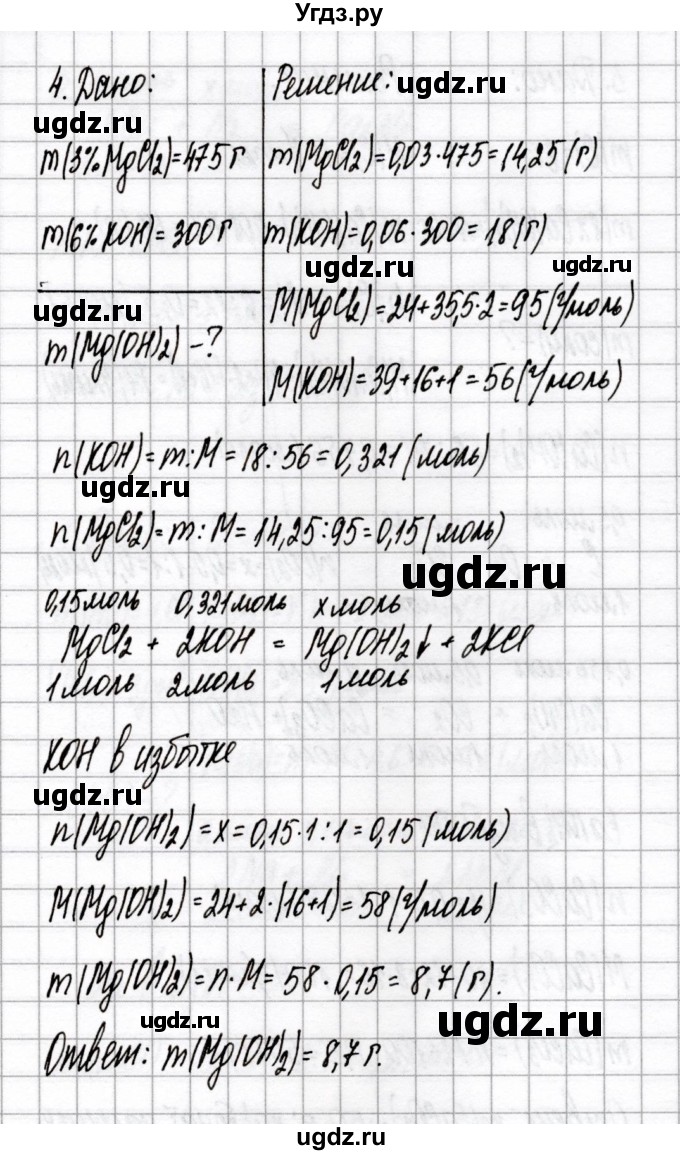 Угдз.ру
4. Дано:
Решение:
ugdz.ru
ugdz.ru
m(3% MgCl₂)=475 г
m(MgCl₂)=0,03·475=14,25(г)
m(6% KOH)=300 г
m(KOH)=0,06·300=18(г)
ugdz.ru
ugdz.ru
ugdz.ru
M(MgCl₂)=24+35,5·2=95(г/моль)
m(Mg(OH)₂) -?
M(KOH)=39+16+1=56(г/моль)
n(KOH)=m:M=18:56=0,321(моль)
ugdz.ru
n(MgCl₂)=m:M=14,25:95=0,15(моль)
ugdz.ru
ugdz.ru
0,15моль 0,321моль x моль
MgCl₂ + 2KOH = Mg(OH)₂↓ + 2KCl
1моль 2моль 1моль
KOH в избытке
ugdz.ru
n(Mg(OH)₂)=x=0,15·1:1=0,15(моль)
M(Mg(OH)₂)=24+2·(16+1)=58(г/моль)
m(Mg(OH)₂)=n·M=58·0,15=8,7(г).
ugdz.ru
ugdz.ru
Ответ: m(Mg(OH)₂)=8,7 г.
ugdz.ru
ugdz.ru